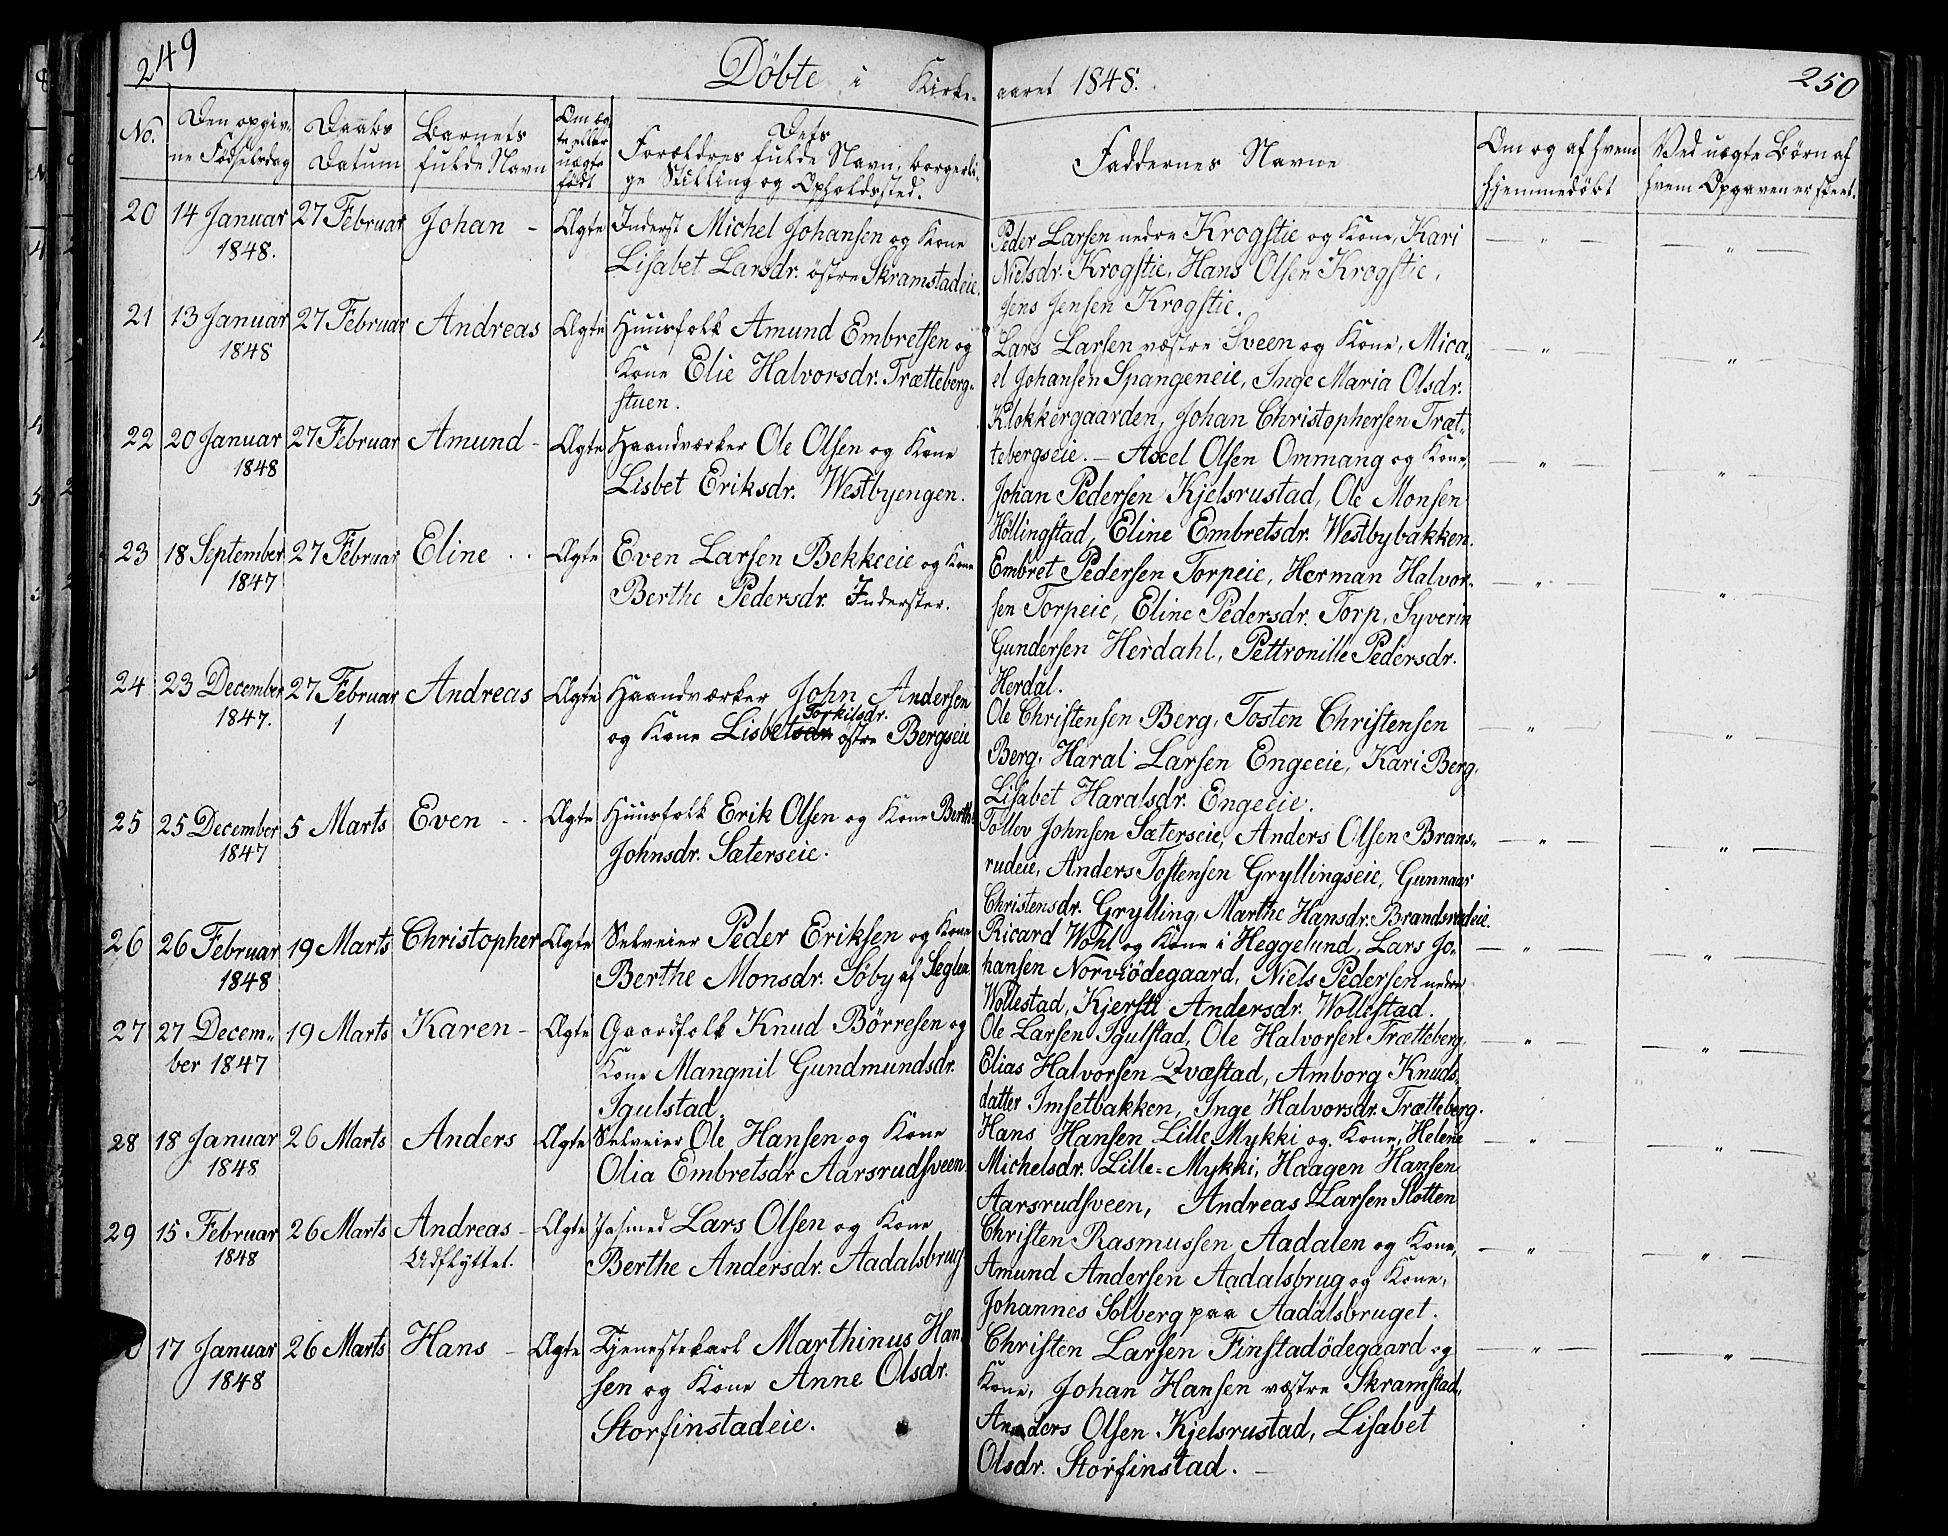 249
Döbte i Kirke-
aaret 1848.
250
No.
Den opgiv-
ne Födselsdag
Daabs
Datum
Barnets
fulde Navn
Om æg-
te eller
uægte
födt
Dets
Forældres fulde Navn, borgerli-
ge Stilling og Opholdssted.
Faddernes Navne
Om og af hvem
hjemmedöbt
Ved uægte Börn af
hvem Opgaven er skeet.
20 14 Januar 27 Februar Johan - Ægte Inderst Michel Johansen og Kone
1848. Lisabet Larsdr. östre Skramstadeie.
Peder Larsen nedre Krogstie og Kone, Kari
Nielsdr. Krogstie, Hans Olsen Krogstie,
Jens Jensen Krogstie.
21 13 Januar 27 Februar Andreas Ægte Huusfolk Amund Embretsen og
1848 Kone Elie Halvorsdr. Trætteberg-
stuen.
Lars Larsen væstre Sveen og Kone, Mica-
el Johansen Spangeneie, Inge Maria Olsdr.
Klokkergaarden, Johan Christophersen Træt-
tebergseie. - Axel Olsen Ommang og Kone,
22 20 Januar 27 Februar Amund - Ægte Haandværker Ole Olsen og Kone
1848 Lisbet Eriksdr. Westbyengen.
Johan Pedersen Kjelsrustad, Ole Monsen
Höllingstad, Eline Embretsdr. Westbybakken.
23 18 September 27 Februar Eline . . Ægte Even Larsen Bekkeeie og Kone
1847 Berthe Pedersdr. Inderster.
Embret Pedersen Torpeie, Herman Halvor-
sen Torpeie, Eline Pedersdr. Torp, Syverin
Gundersen Herdahl, Pettronille Pedersdr.
Herdal.
24 23 December 27 Februar Andreas Ægte Haandværker John Andersen
1847. 1 Torkilsdr.
og Kone Lisbet östre Bergseie
Ole Christensen Berg, Tosten Christensen
Berg, Haral Larsen Engeeie, Kari Berg,
Lisabet Haralsdr. Engeeie.
25 25 December 5 Marts Even - . Ægte Huusfolk Erik Olsen og Kone Berthe
1847 Johnsdr. Sæterseie.
Tollev Johnsen Sæterseie, Anders Olsen Brans-
rudeie, Anders Tostensen Gryllingseie, Gunnaar
Christensdr. Grylling, Marthe Hansdr. Brandsrudeie.
26 26 Februar 19 Marts Christopher Ægte Selveier Peder Eriksen og Kone
1848 Berthe Monsdr. Söby af Seglen
Ricard Wohl og Kone i Heggelund, Lars Jo-
hansen Norviödegaard, Niels Pedersen nedre
Wollestad, Kjersti Andersdr. Wollestad.
27 27 Decem- 19 Marts Karen - Ægte Gaardfolk Knud Börresen og
ber 1847 Kone Mangnil Gundmundsdr.
Igulstad.
Ole Larsen Igulstad, Ole Halvorsen Trætteberg,
Elias Halvorsen Qvæstad, Amborg Knuds-
datter Imsetbakken, Inge Halvorsdr. Trætteberg.
28 18 Januar 26 Marts Anders Ægte Selveier Ole Hansen og Kone
1848 Olia Embretsdr Aarsrudsveen
Hans Hansen Lille Mykki og Kone, Helene
Michelsdr. Lille-Mykki, Haagen Hansen
Aarsrudsveen, Andreas Larsen Slotten
29 15 Februar 26 Marts Andreas - Ægte Lars Olsen og Kone
1848 Udflyttet. Berthe Andersdr. Aadalsbrug
Christen Rasmussen Aadalen og Kone,
Amund Andersen Aadalsbrug og Kone,
Johannes Solberg paa Aadalsbruget.
17 Januar 26 Marts Hans - Ægte Tjenestekarl Marthinus Han-
1848 sen og Kone Anne Olsdr.
Storfinstadeie.
Christen Larsen Finstadödegaard og
Kone, Johan Hansen væstre Skramstad,
Anders Olsen Kjelsrustad, Lisabet
Olsdr. Storfinstad.